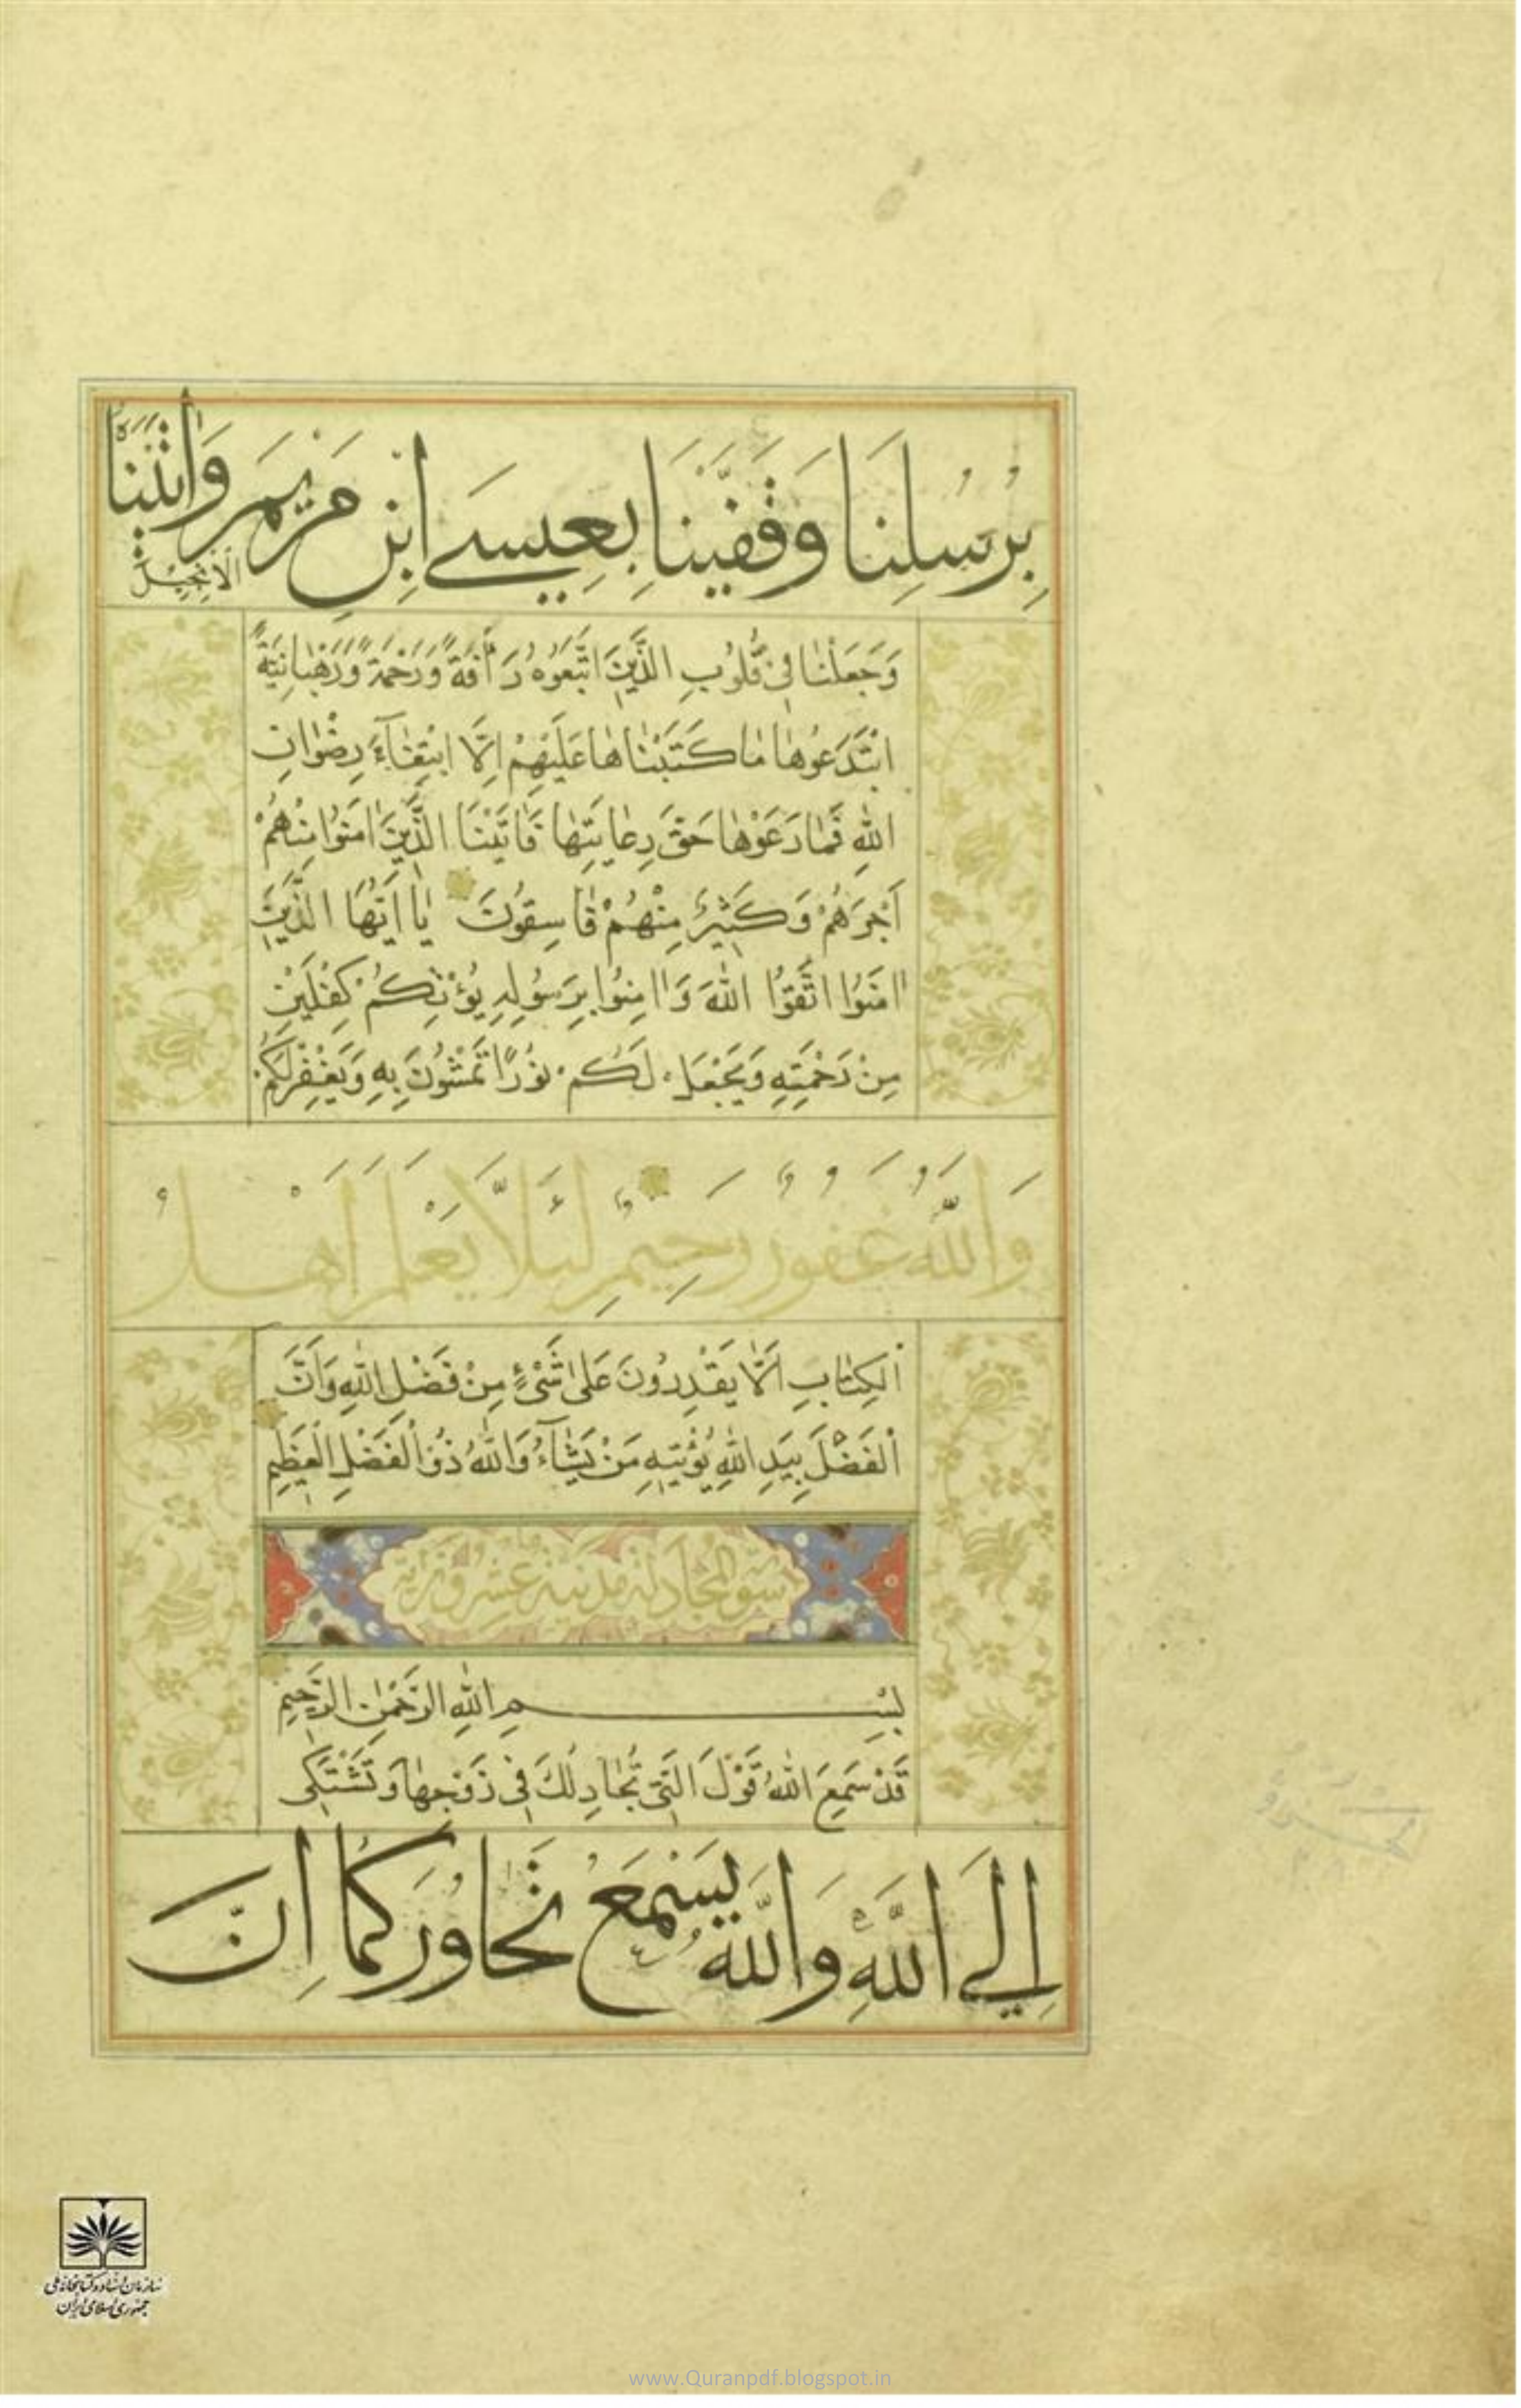 بِرُسُلِنَا وَقَفَّيْنَا بِعِيسَى ابْنِ مَرْيَمَ وَاٰتَيْنَاهُ
الْاِنْجِيلَ
وَجَعَلْنَا فِي قُلُوبِ الَّذِينَ اتَّبَعُوهُ رَأْفَةً وَرَحْمَةً وَرَهْبَانِيَّةً
ابْتَدَعُوهَا مَا كَتَبْنَاهَا عَلَيْهِمْ اِلَّا ابْتِغَآءَ رِضْوَانِ
اللّٰهِ فَمَا رَعَوْهَا حَقَّ رِعَايَتِهَا فَاٰتَيْنَا الَّذِينَ اٰمَنُوا مِنْهُمْ
اَجْرَهُمْ وَكَثِيرٌ مِنْهُمْ فَاسِقُونَ يَا اَيُّهَا الَّذِينَ
اٰمَنُوا اتَّقُوا اللّٰهَ وَاٰمِنُوا بِرَسُولِهِ يُؤْتِكُمْ كِفْلَيْنِ
مِنْ رَحْمَتِهِ وَيَجْعَلْ لَكُمْ نُورًا تَمْشُونَ بِهِ وَيَغْفِرْ لَكُمْ
وَاللّٰهُ غَفُورٌ رَحِيمٌ لِئَلَّا يَعْلَمَ اَهْلُ
الْكِتَابِ اَلَّا يَقْدِرُونَ عَلَى شَىْءٍ مِنْ فَضْلِ اللّٰهِ وَاَنَّ
الْفَضْلَ بِيَدِ اللّٰهِ يُؤْتِيهِ مَنْ يَشَآءُ وَاللّٰهُ ذُو الْفَضْلِ الْعَظِيمِ
سورة المجادلة مدنية عشرون اية
بِسْمِ اللّٰهِ الرَّحْمٰنِ الرَّحِيمِ
قَدْ سَمِعَ اللّٰهُ قَوْلَ الَّتِي تُجَادِلُكَ فِي زَوْجِهَا وَتَشْتَكِي
اِلَى اللّٰهِ وَاللّٰهُ يَسْمَعُ تَحَاوُرَكُمَا اِنَّ
سازمان اسناد و کتابخانه ملی
جمهوری اسلامی ایران
www.Quranpdf.blogspot.in